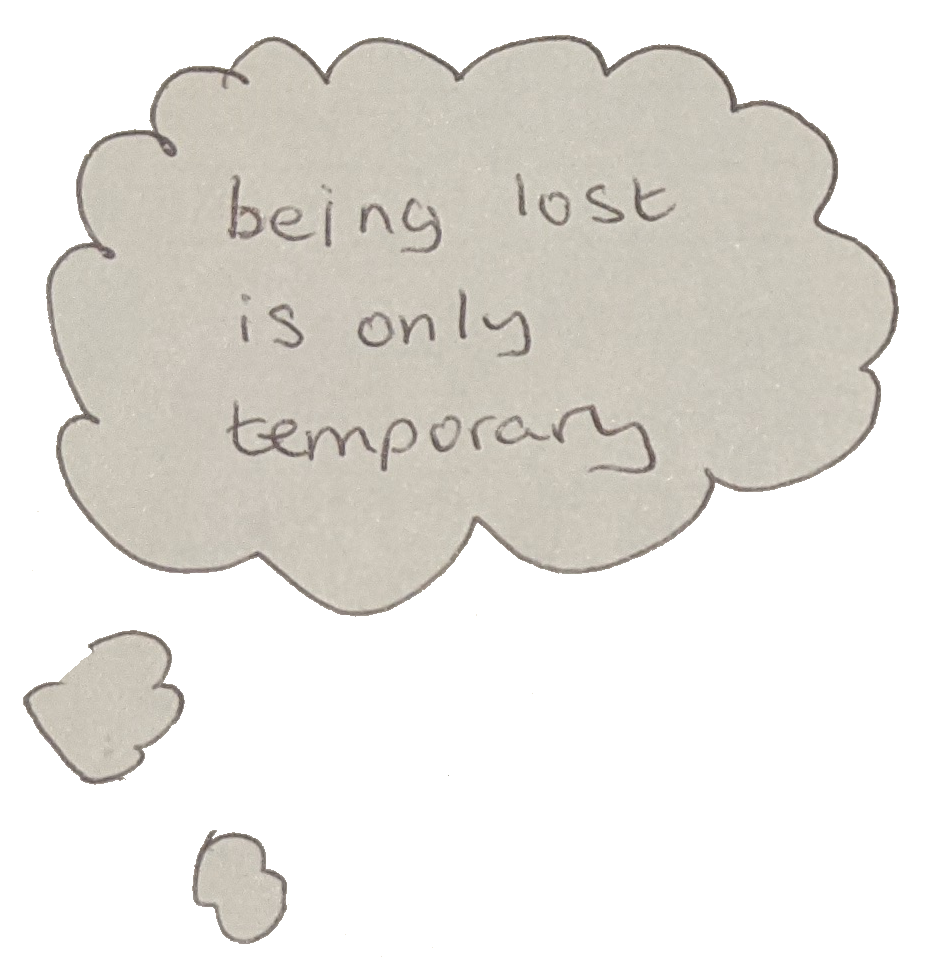 being lost
is only
temporary